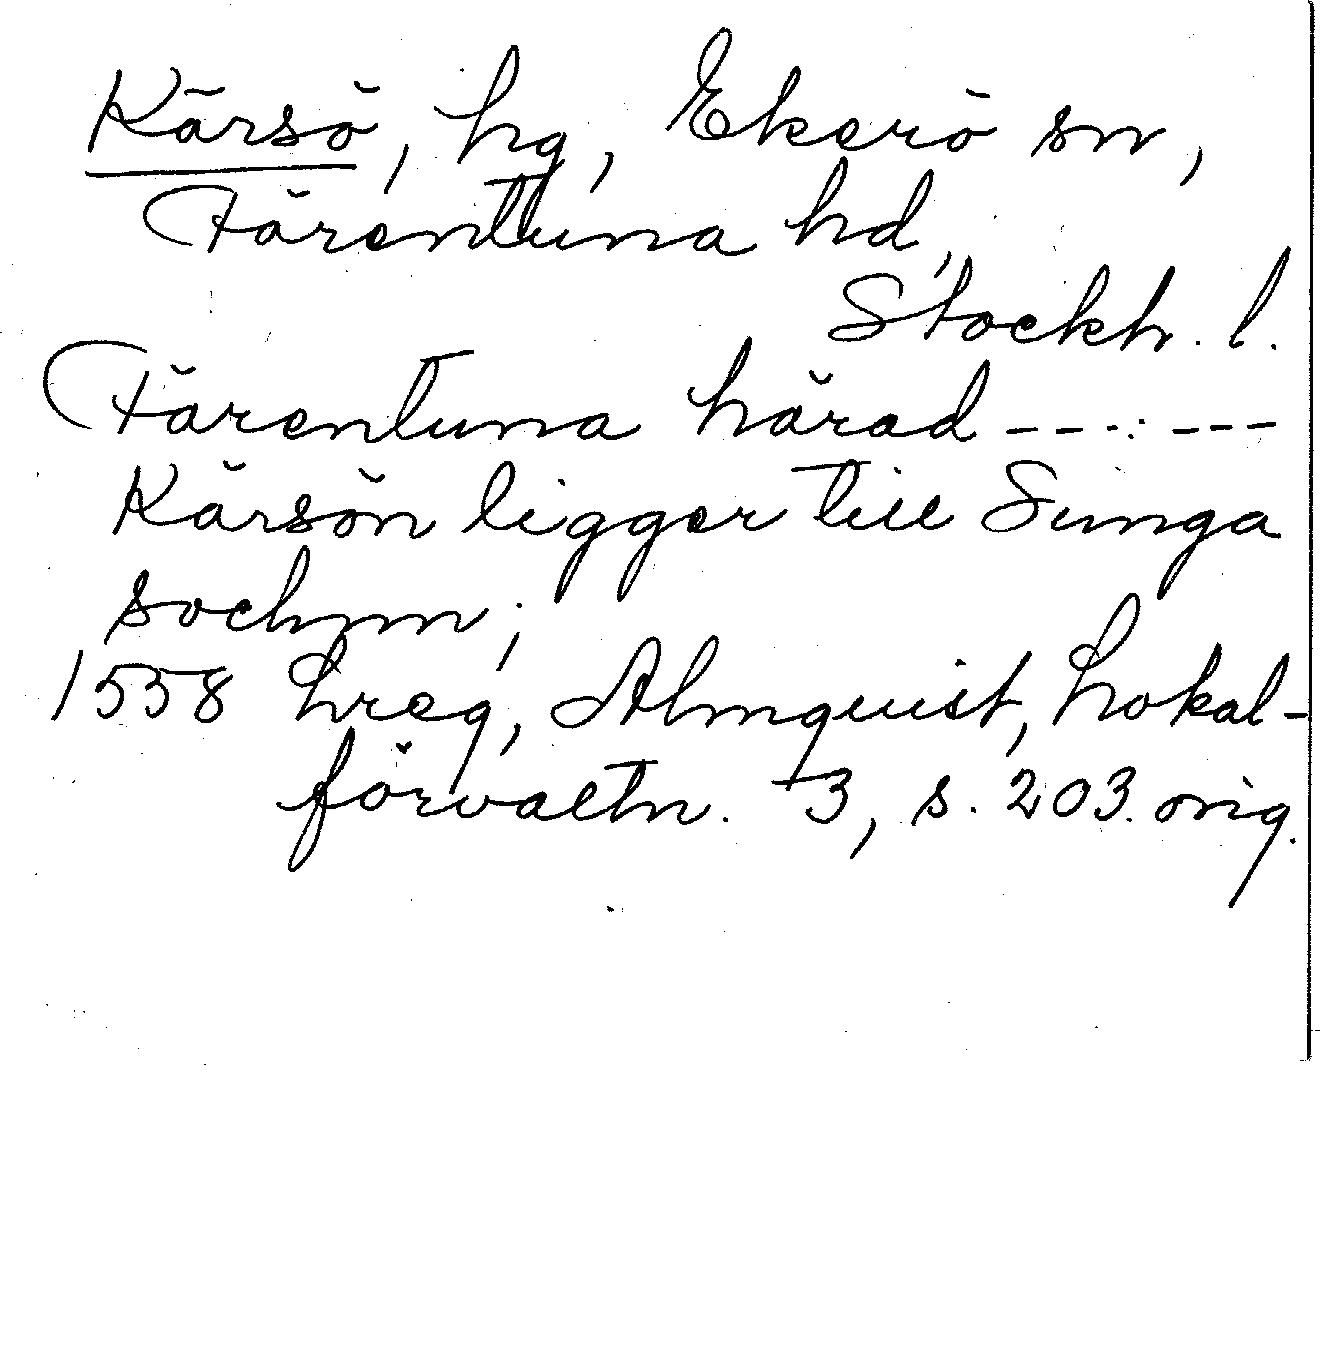 Kärsö, hg, Ekerö sn,
Färentuna hd,
Stockh. l.
Färentuna härad ------
Kärsön ligger till Sunga
sochnn;
1558 Lreg, Almquist, Lokal-
förvaltn. 3, s. 203. orig.